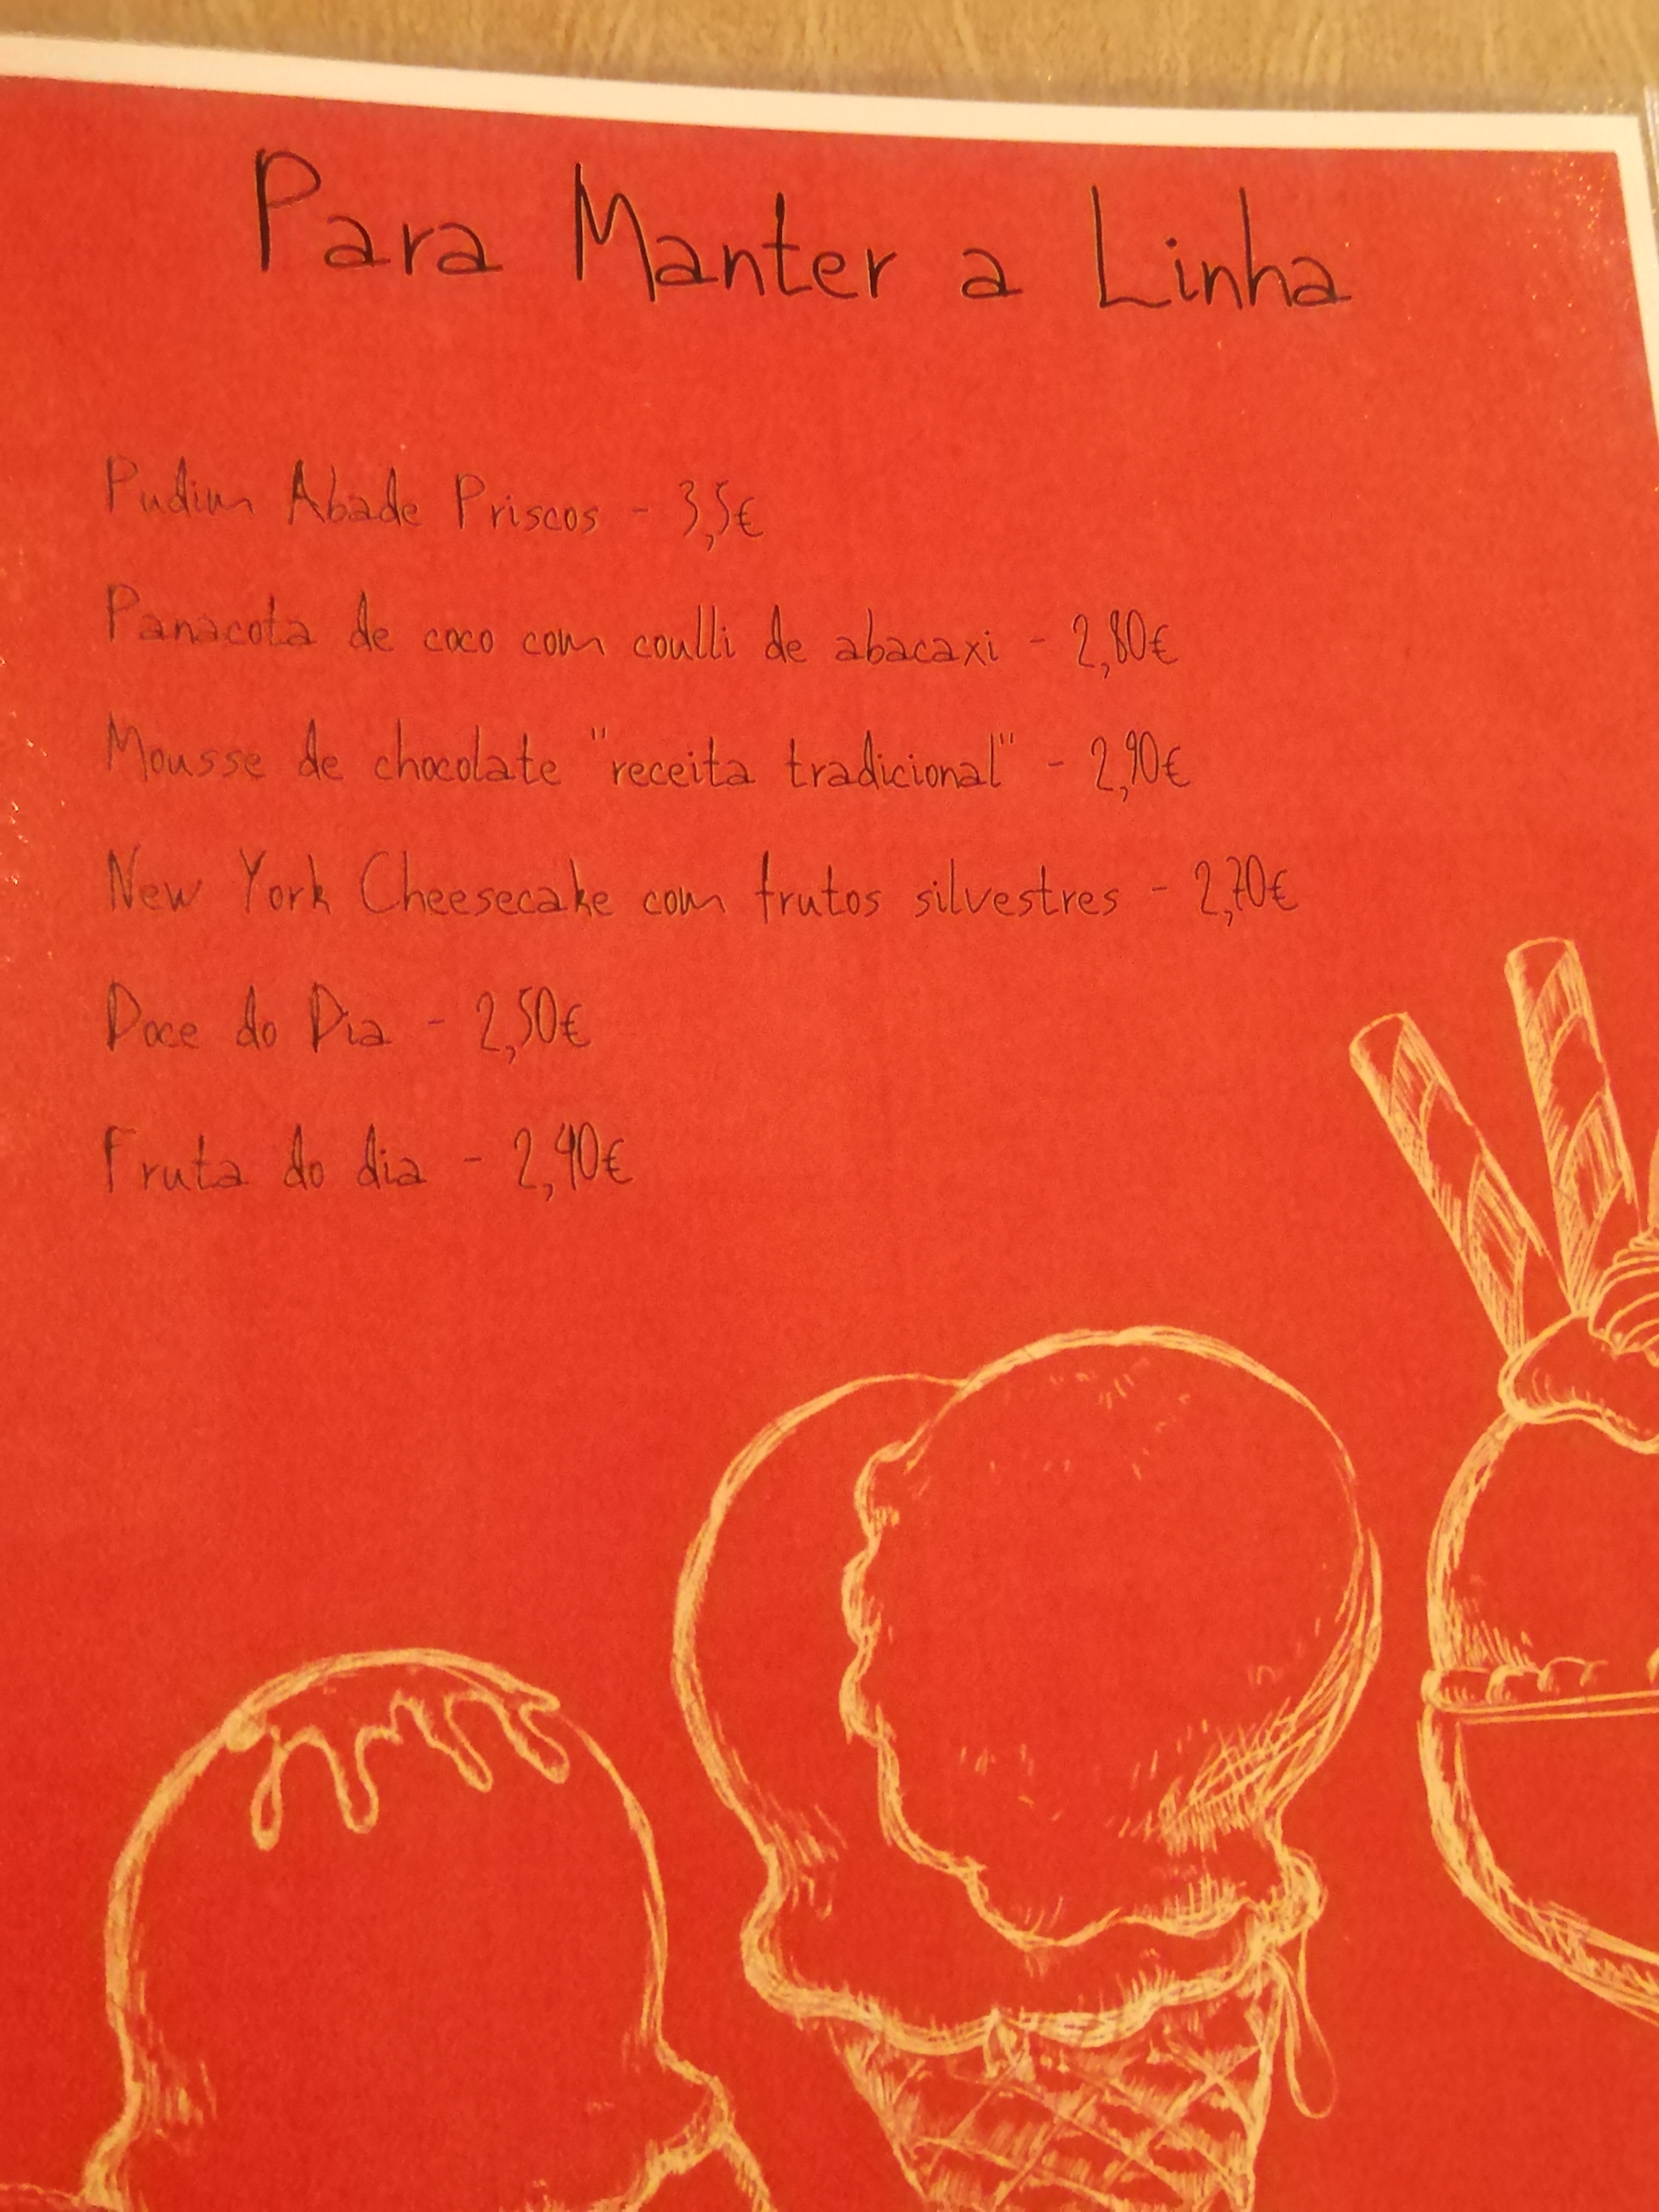 Para Manter a Linha
Pudim Abade Priscos - 3,5€
Panacota de coco com coulli de abacaxi - 2,80€
Mousse de chocolate "receita tradicional" - 2,90€
New York Cheesecake com frutos silvestres - 2,70€
Doce do Dia - 2,50€
Fruta do dia - 2,40€